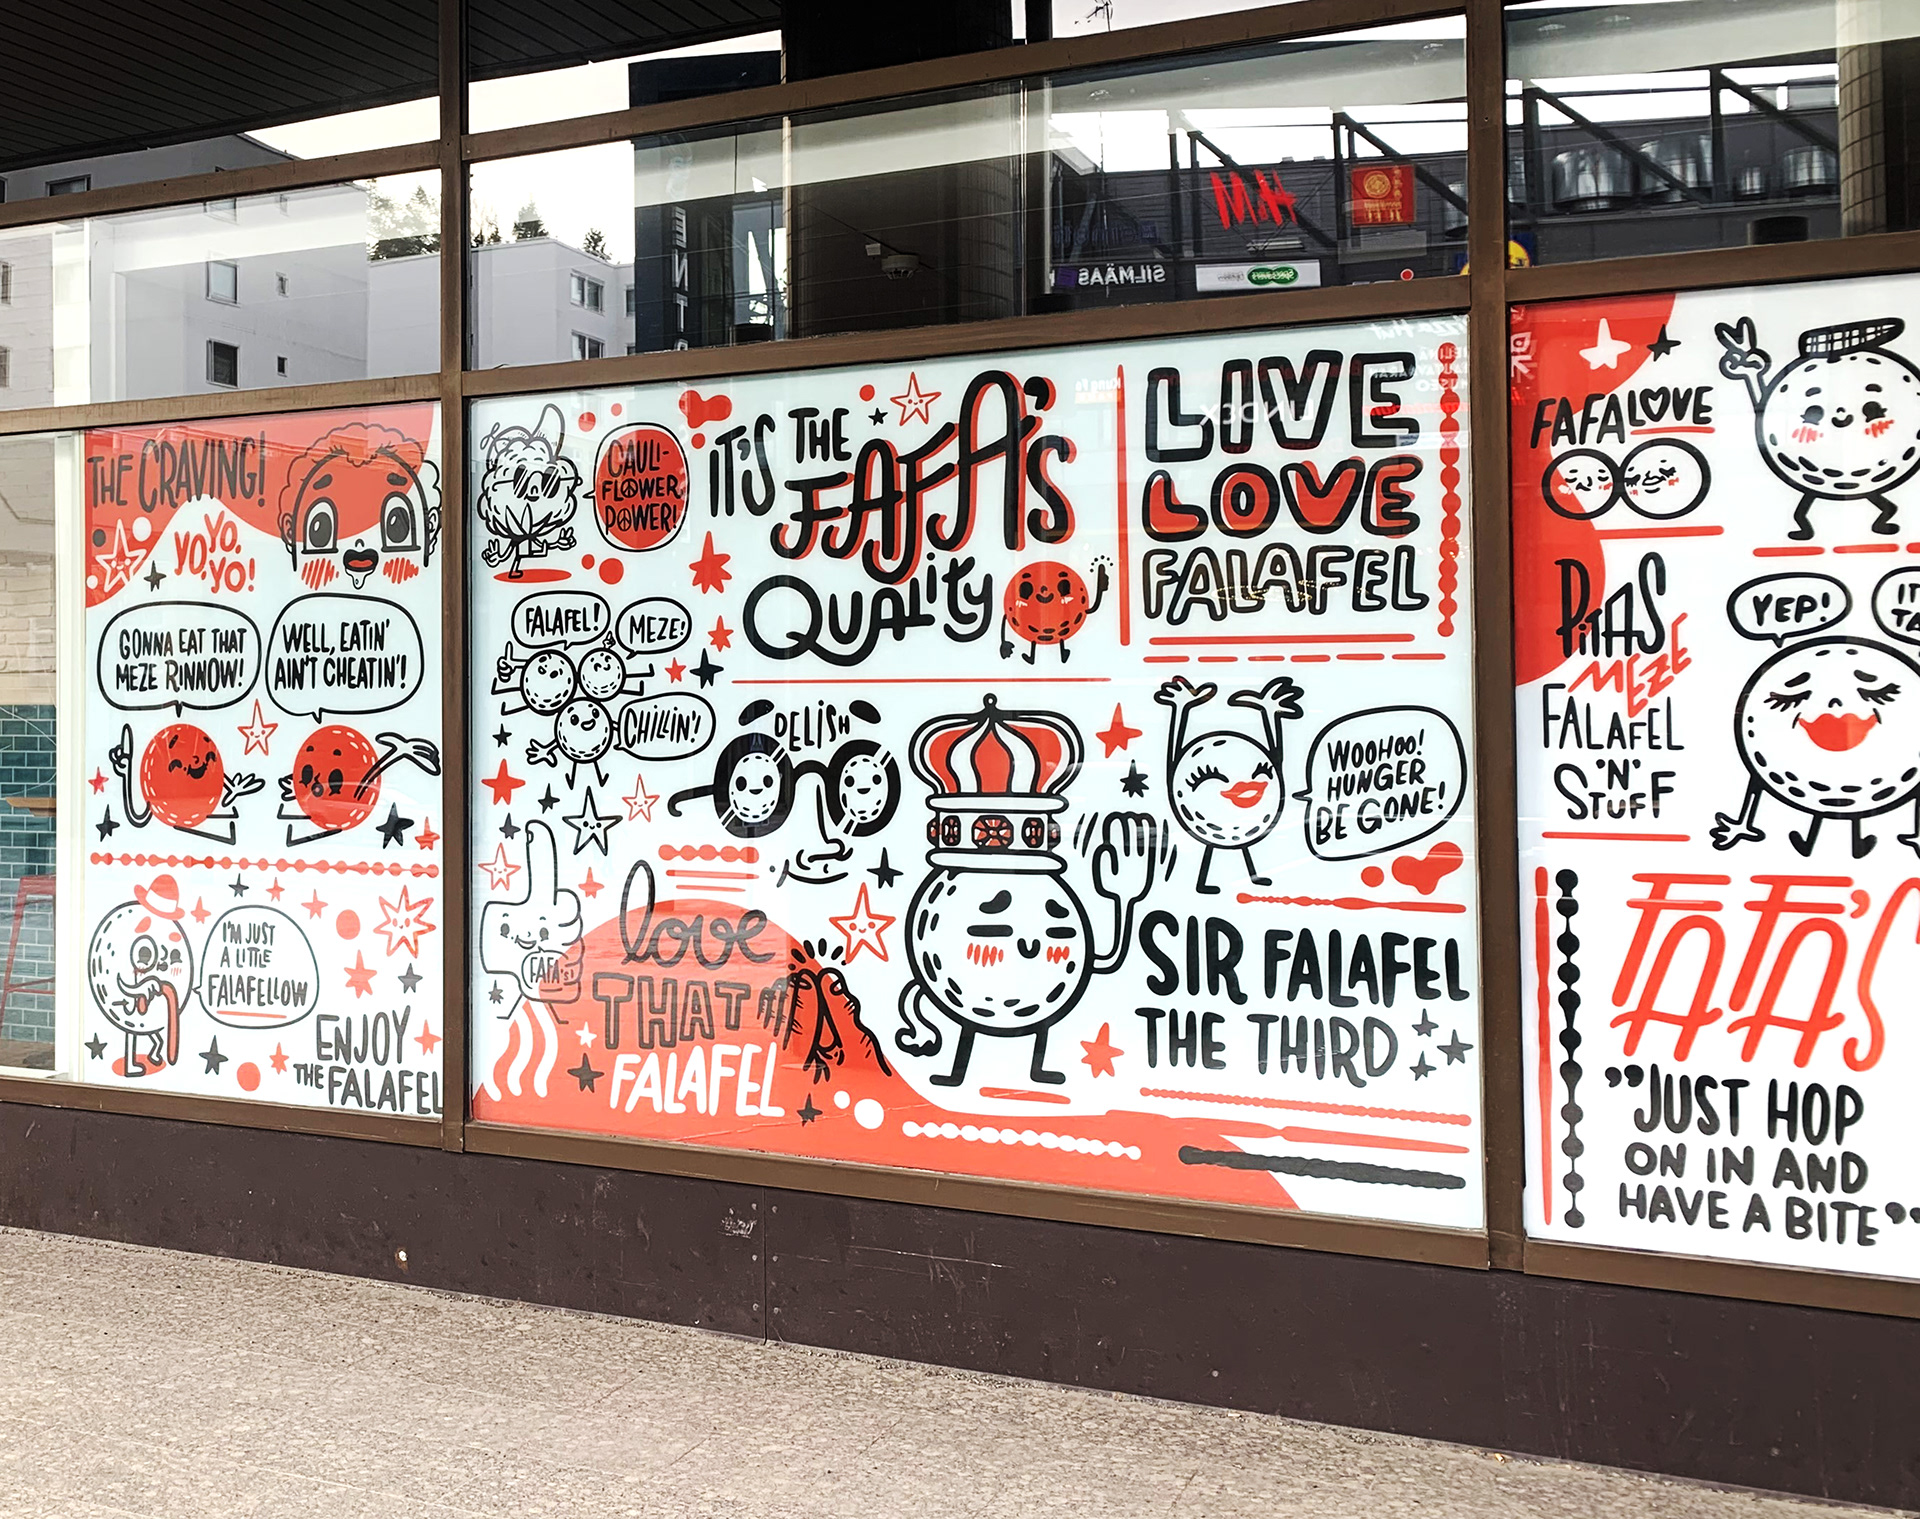 THE CRAVING!
YO,
YO,
YO,
YO!
GONNA EAT THAT
MEZE RINNOW!
WELL, EATIN'
AIN'T CHEATIN'!
I'M JUST
A LITTLE
FALAFELLOW
ENJOY
THE FALAFEL
CAULI-
FLOWER
POWER!
IT'S THE
FAFA'S
QUALITY
LIVE
LOVE
FALAFEL
FALAFEL!
MEZE!
CHILLIN'!
DELISH
WOOHOO!
HUNGER
BE GONE!
FAFA'S!
love
THAT
FALAFEL
SIR FALAFEL
THE THIRD
FAFALOVE
PITAS
MEZE
FALAFEL
'N'
STUFF
YEP!
FAFA'S
"JUST HOP
ON IN AND
HAVE A BITE"
H&M
SILMÄASE
Specsavers
LINDEX